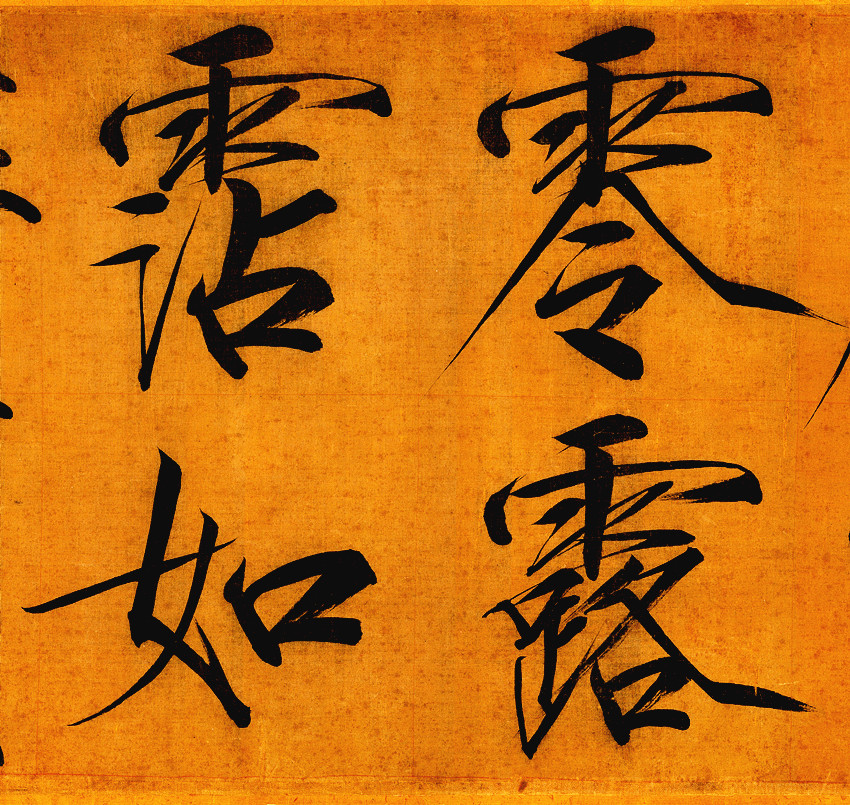 零露
霑如